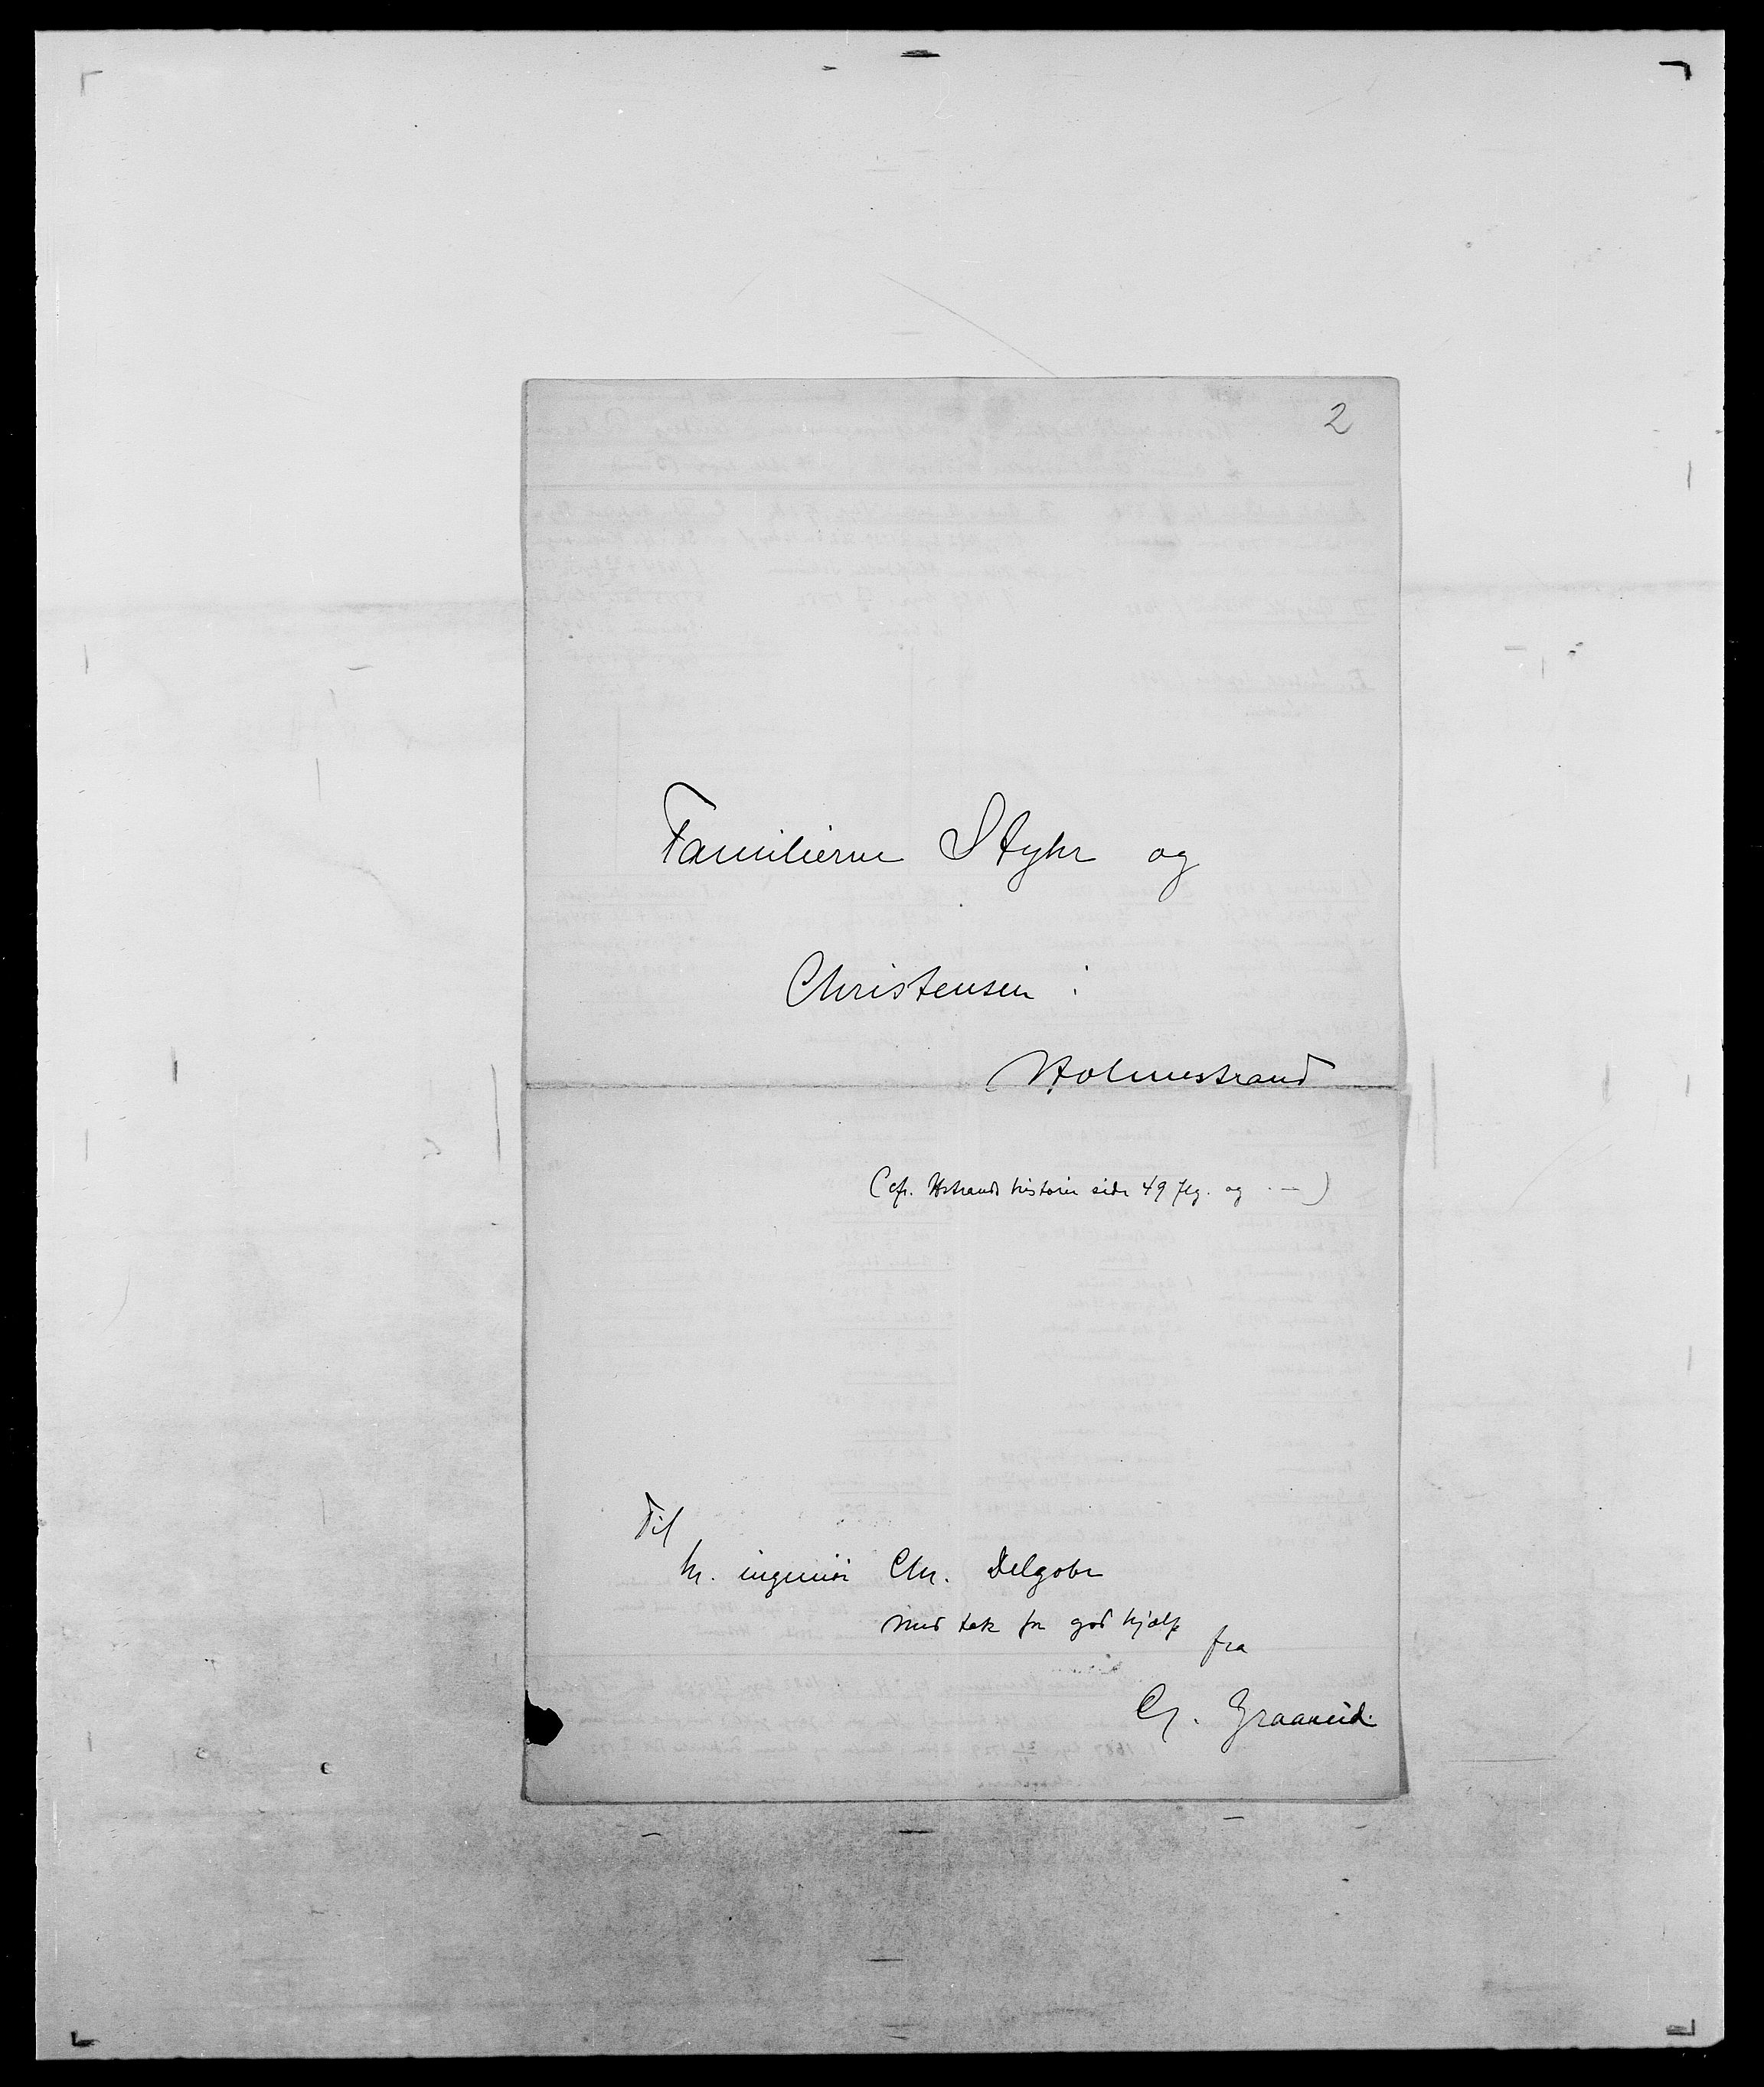 2
Familierne Styhr og
Christensen i
Holmestrand
(cfr. Hstrands historie side 49 flg. og · — )
Til
hr. ingeniør Chr. Delgobe
med tak for god hjælp
fra
G. Graaneid.